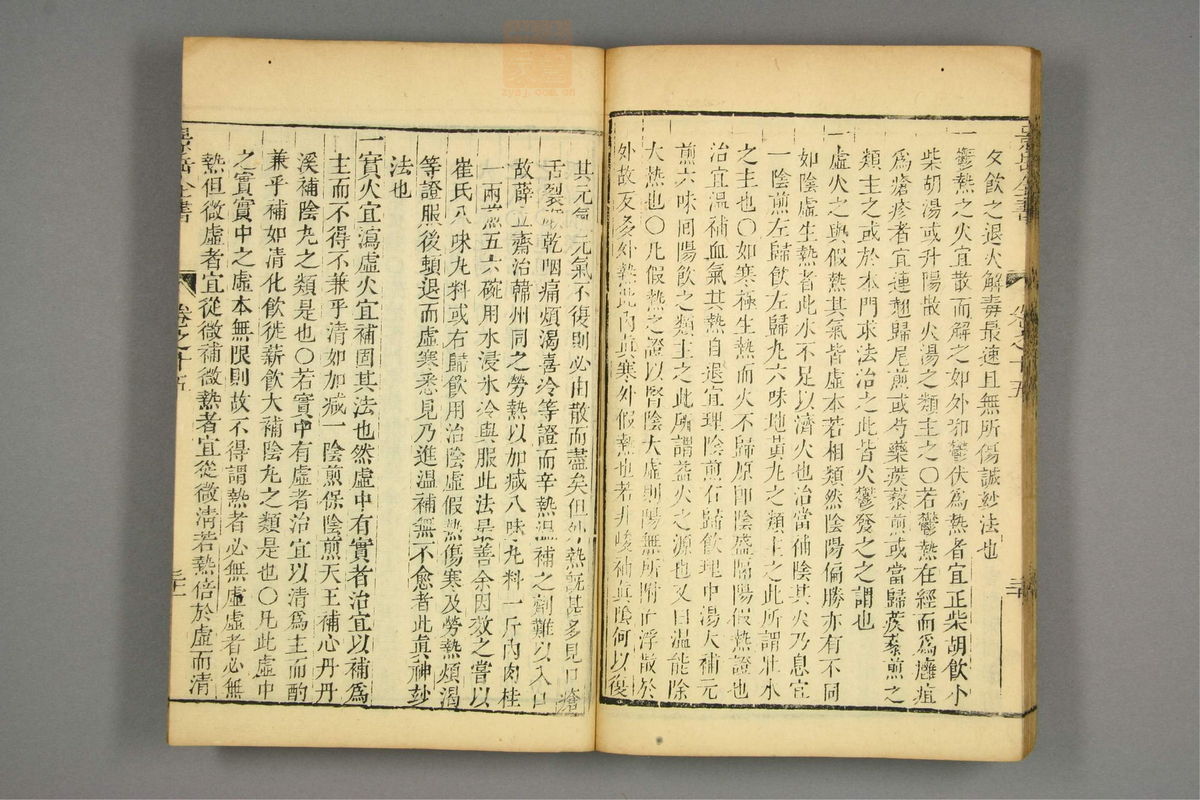 夂飲之退火解毒最速且無所傷誠玅法也
一鬱熱之火宜散而解之如外邪鬱伏為熱者宜正柴胡飲小
柴胡湯或升陽散火湯之類主之○若鬱熱在經而為癰疽
為瘡疹者宜連翹歸尾煎或芍藥蒺藜煎或當歸蒺藜煎之
類主之或於本門求法治之此皆火鬱發之之謂也
一虛火之與假熱其氣皆虛本若相類然陰陽偏勝亦有不同
如陰虛生熱者此水不足以濟火也治當補陰其火乃息宜
一陰煎左歸飲左歸丸六味地黃丸之類主之此所謂壯水
之主也○如寒極生熱而火不歸原即陰盛隔陽假熱證也
治宜温補血氣其熱自退宜理陰煎右歸飲理中湯大補元
煎六味回陽飲之類主之此所謂益火之源也又曰温能除
大熱也○凡假熱之證以腎陰大虛則陽無所附而浮散於
外故反多外熱此內真寒外假熱也若非峻補真陰何以復
景岳全書
卷之十五
三十一
其元氣元氣不復則必由散而盡矣但外熱既甚多見口瘡
舌裂喉乾咽痛煩渴喜冷等證而辛熱温補之劑難以入口
故薛立齋治韓州同之勞熱以加減八味丸料一斤內肉桂
一兩煎五六碗用水浸氷冷與服此法最善余因效之嘗以
崔氏八味丸料或右歸飲用治陰虛假熱傷寒及勞熱煩渴
等證服後頓退而虛寒悉見乃進温補無不愈者此真神玅
法也
一實火宜瀉虛火宜補固其法也然虛中有實者治宜以補為
主而不得不兼乎清如加減一陰煎保陰煎天王補心丹丹
溪補陰丸之類是也○若實中有虛者治宜以清為主而酌
兼乎補如清化飲徙薪飲大補陰丸之類是也○凡此虛中
之實實中之虛本無限則故不得謂熱者必無虛虛者必無
熱但微虛者宜從微補微熱者宜從微清若熱倍於虛而清
景岳全書
卷之十五